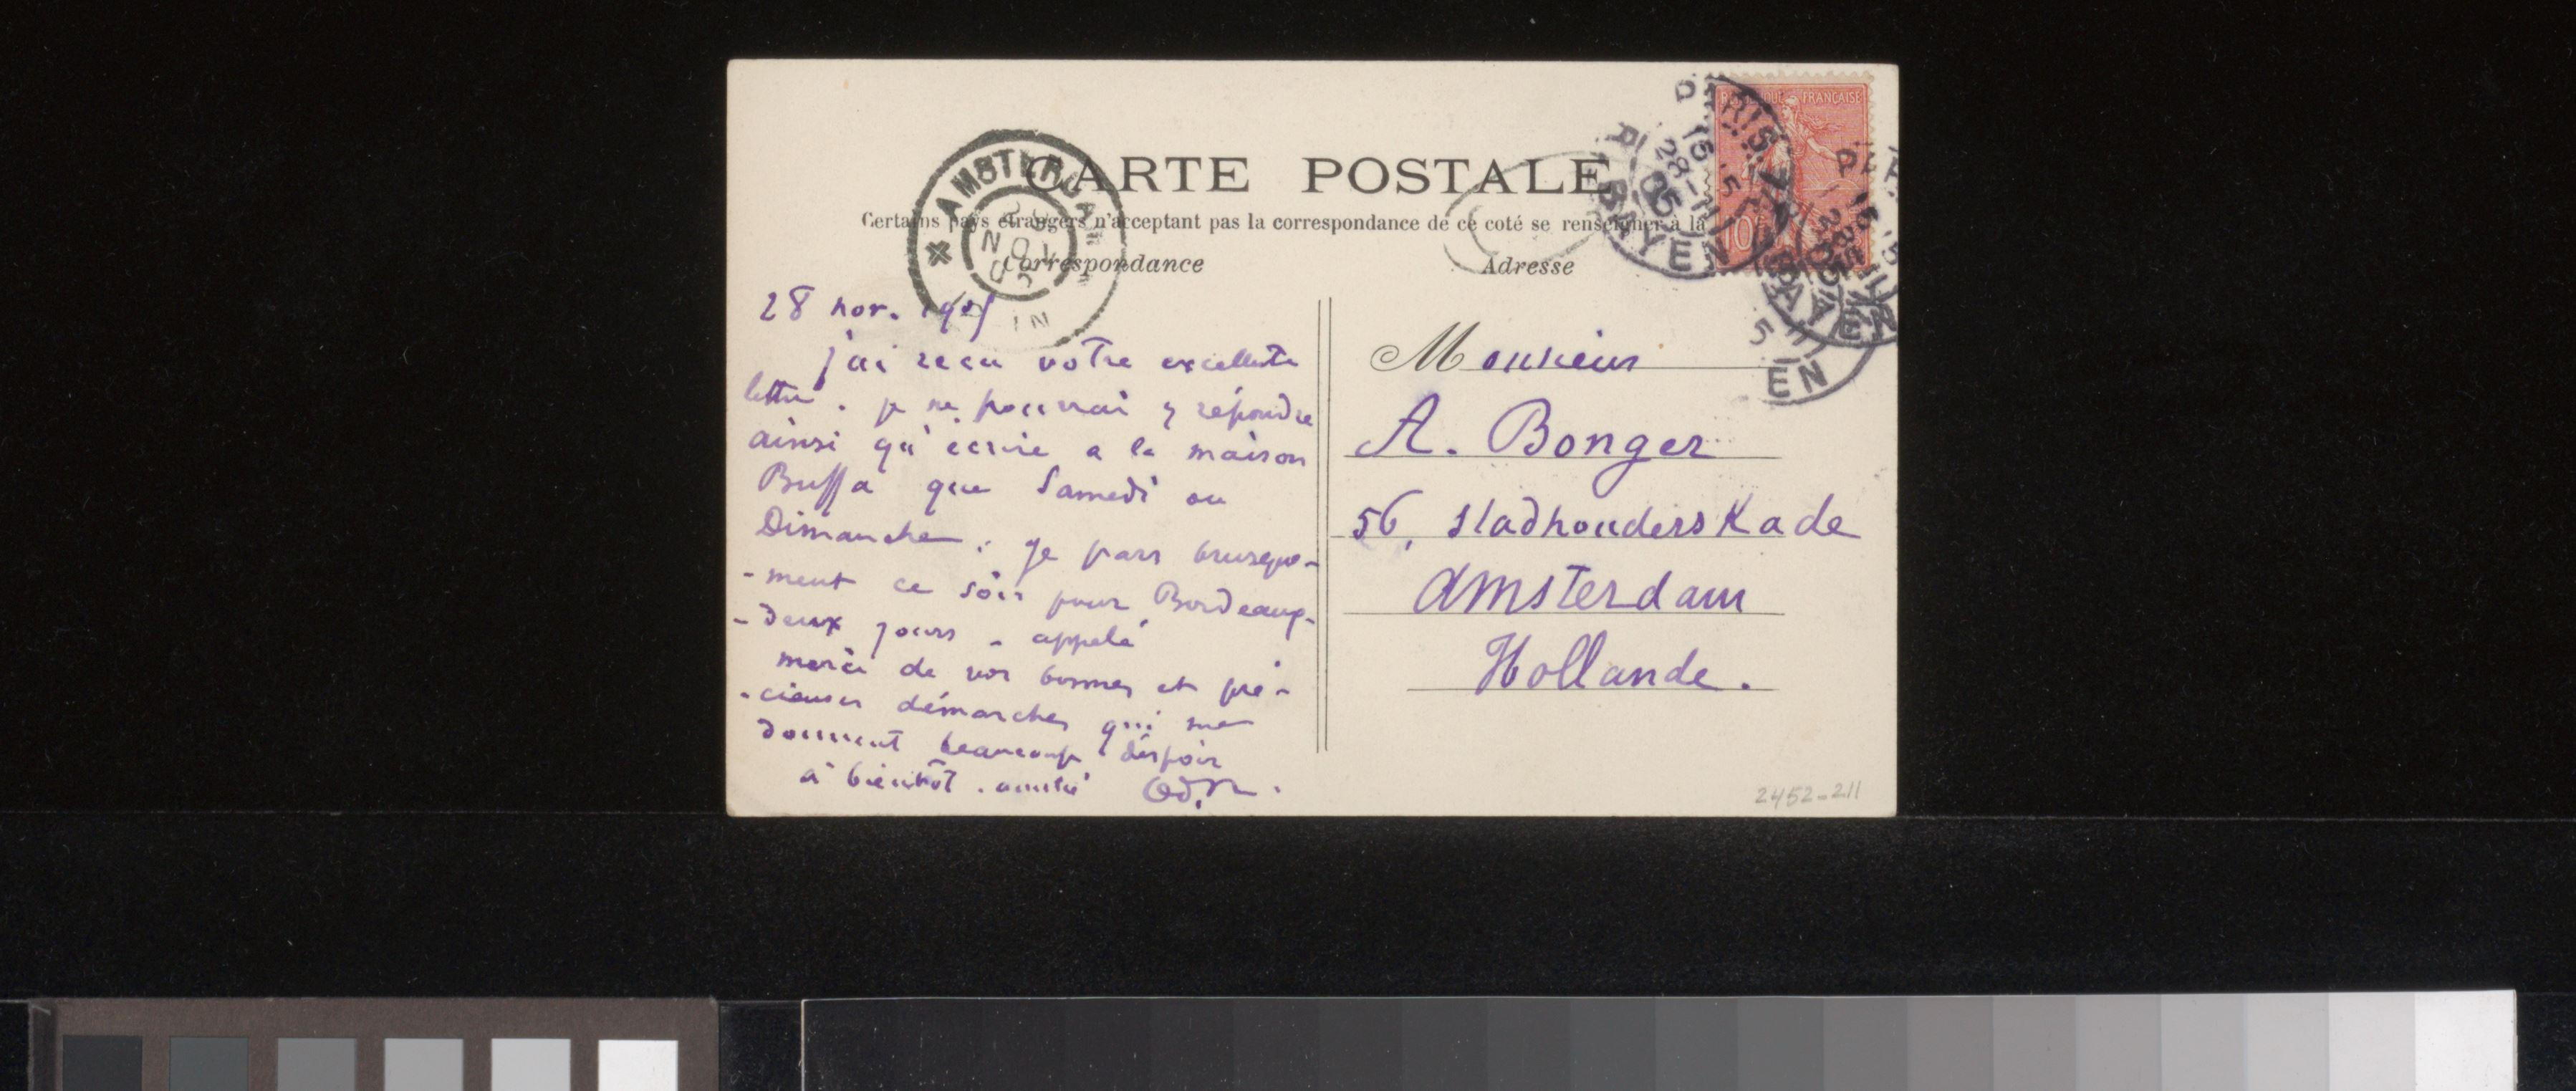 CARTE POSTALE
Certains pays étrangers n'acceptant pas la correspondance de ce coté se renseigner à la
Correspondance
Adresse
AMSTERDAM
NOV
RÉPUBLIQUE FRANÇAISE
10
PARIS
15
28-11
05
R. BAYEN
PARIS
15
28-11
05
BAYEN
5
EN
28 nov. 1905
j'ai recu votre excellente
lettre. je ne pourrai y répondre
ainsi qu'écrire a la maison
Buffa que Samedi ou
Dimanche. Je pars brusque-
-ment ce soir pour Bordeaux-
-deux jours - appelé
merci de vos bonnes et pré-
-cieuses démarches qui me
donnent beaucoup d'espoir
à bientôt. amitié Od. R.
Monsieur
A. Bonger
56, Stadhouderskade
Amsterdam
Hollande.
2452-211